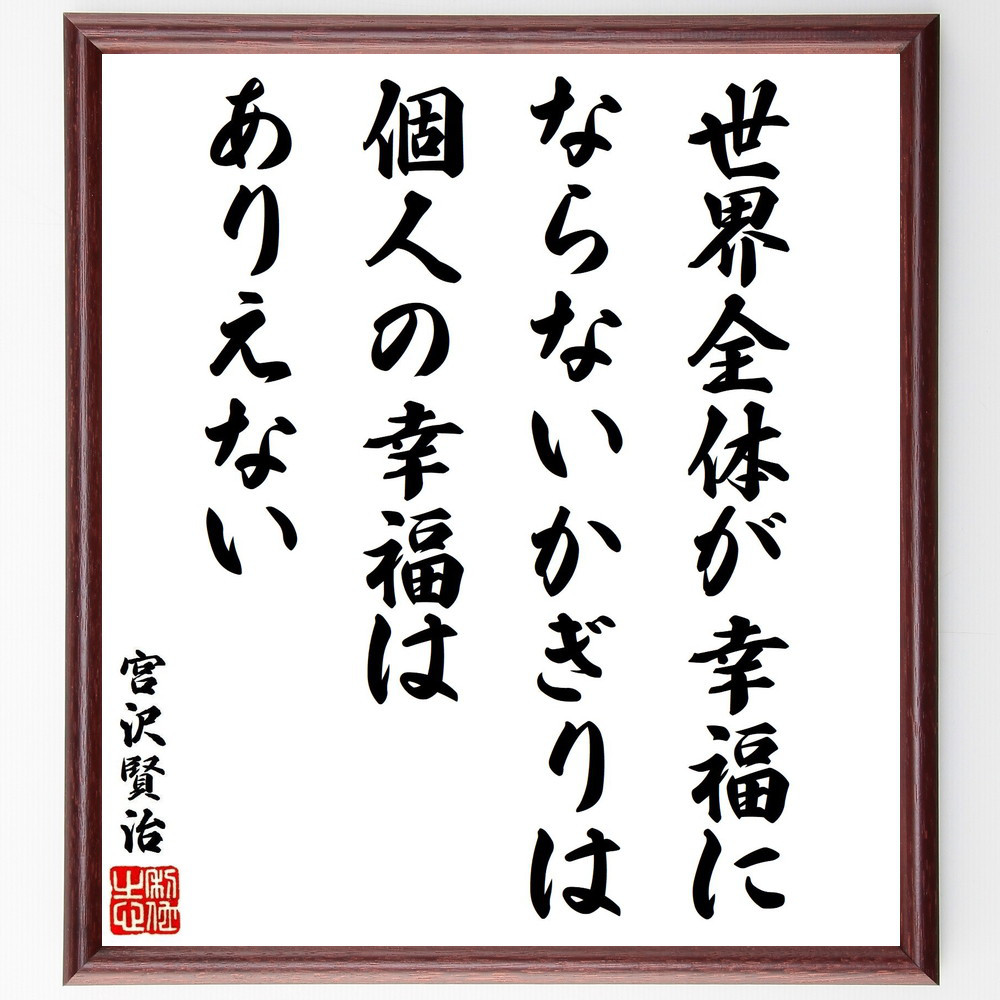 世界全体が幸福に
ならないかぎりは
個人の幸福は
ありえない
宮沢賢治